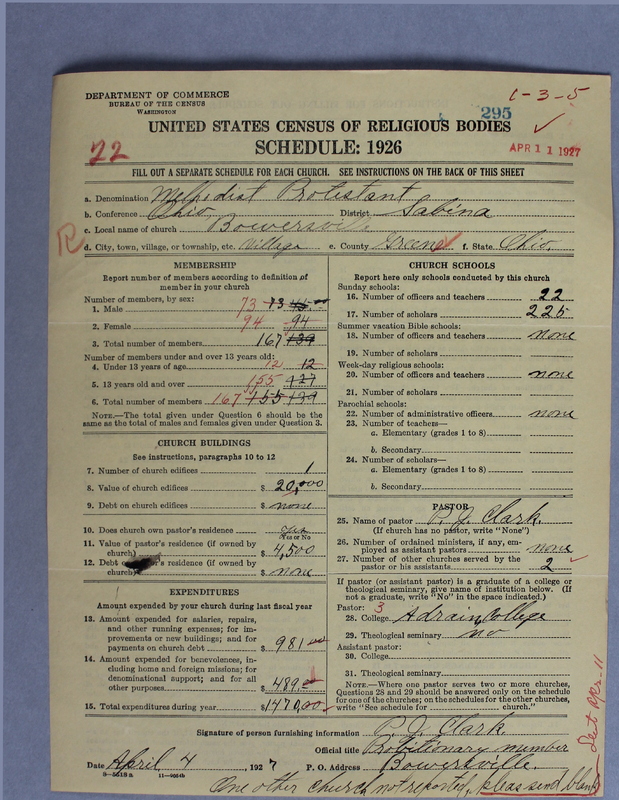 DEPARTMENT OF COMMERCE
BUREAU OF THE CENSUS
WASHINGTON
1-3-5
295
UNITED STATES CENSUS OF RELIGIOUS BODIES
SCHEDULE: 1926
22
APR 11 1927
FILL OUT A SEPARATE SCHEDULE FOR EACH CHURCH. SEE INSTRUCTIONS ON THE BACK OF THIS SHEET
a. Denomination Methodist Protestant
b. Conference Ohio District Sabina
c. Local name of church Bowersville
R
d. City, town, village, or township, etc. Village e. County Greene f. State Ohio.
MEMBERSHIP
Report number of members according to definition of
member in your church
Number of members, by sex:
1. Male 73 73 45
2. Female 94 94
3. Total number of members 167 139
Number of members under and over 13 years old:
4. Under 13 years of age 12 12
5. 13 years old and over 155 127
6. Total number of members 167 155 139
NOTE.—The total given under Question 6 should be
the same as total of males and females given under Question 3.
CHURCH BUILDINGS
See instructions, paragraphs 10 to 12
7. Number of church edifices 1
8. Value of church edifices $ 20,000
9. Debt on church edifices $ none
10. Does church own pastor's residence yes
Yes or No
11. Value of pastor's residence (if owned by
church) $ 4,500
12. Debt residence (if owned by
church) $ none
EXPENDITURES
Amount expended by your church during last fiscal year
13. Amount expended for salaries, repairs,
and other running expenses; for im-
provements or new buildings; and for
payments on church debt $ 981
14. Amount expended for benevolences, in-
cluding home and foreign missions; for
denominational support; and for all
other purposes $ 489.00
15. Total expenditures during year $ 1470.00
CHURCH SCHOOLS
Report here only schools conducted by this church
Sunday schools:
16. Number of officers and teachers 22
17. Number of scholars 225
Summer vacation Bible schools:
18. Number of officers and teachers none
19. Number of scholars
Week-day religious schools:
20. Number of officers and teachers none
21. Number of scholars
Parochial schools:
22. Number of administrative officers none
23. Number of teachers—
a. Elementary (grades 1 to 8)
b. Secondary
24. Number of scholars—
a. Elementary (grades 1 to 8)
b. Secondary
PASTOR
25. Name of pastor P. J. Clark.
(If church has no pastor, write "None")
26. Number of ordained ministers, if any, em-
ployed as assistant pastors none
27. Number of other churches served by the
pastor or his assistants 2
If pastor (or assistant pastor) is a graduate of a college or
theological seminary, give name of institution below. (If
not a graduate, write "No" in the space indicated.)
Pastor: 3
28. College Adrain College
29. Theological seminary no
Assistant pastor:
30. College
31. Theological seminary
NOTE.—Where one pastor serves two or more churches,
Questions 28 and 29 should be answered only on the schedule
for one of the churches; on the schedules for the other churches,
write "See schedule for church."
Signature of person furnishing information P. J. Clark.
Official title Probitionary number
Date April 4 1927 P. O. Address Bowersville.
One other church not reported, pleas send blank